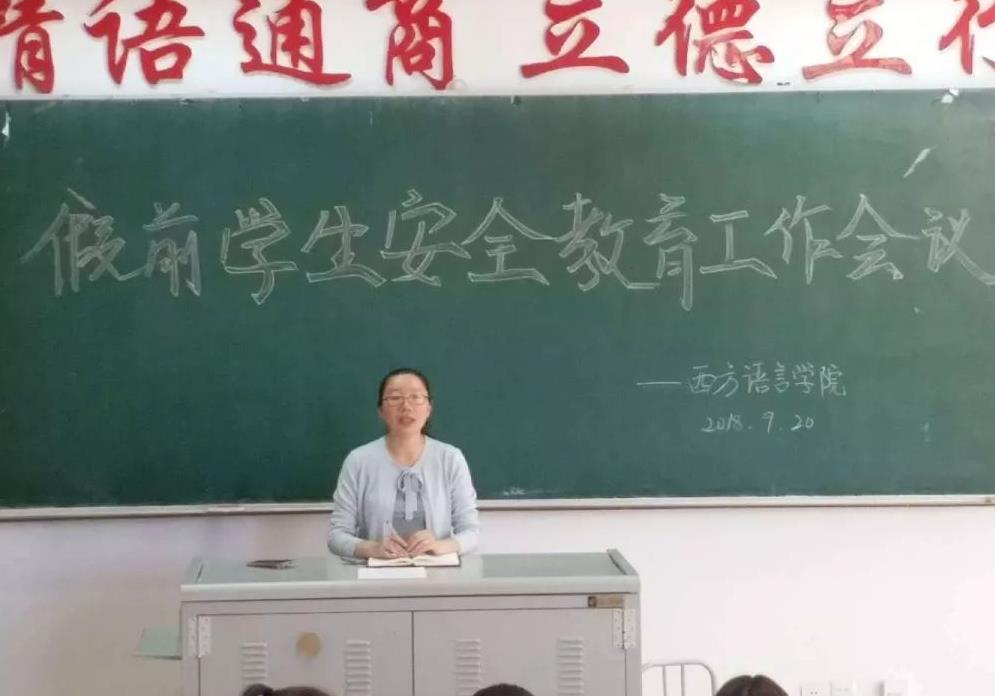 精语通商立德立行
假前学生安全教育工作会议
——西方语言学院
2018.9.20